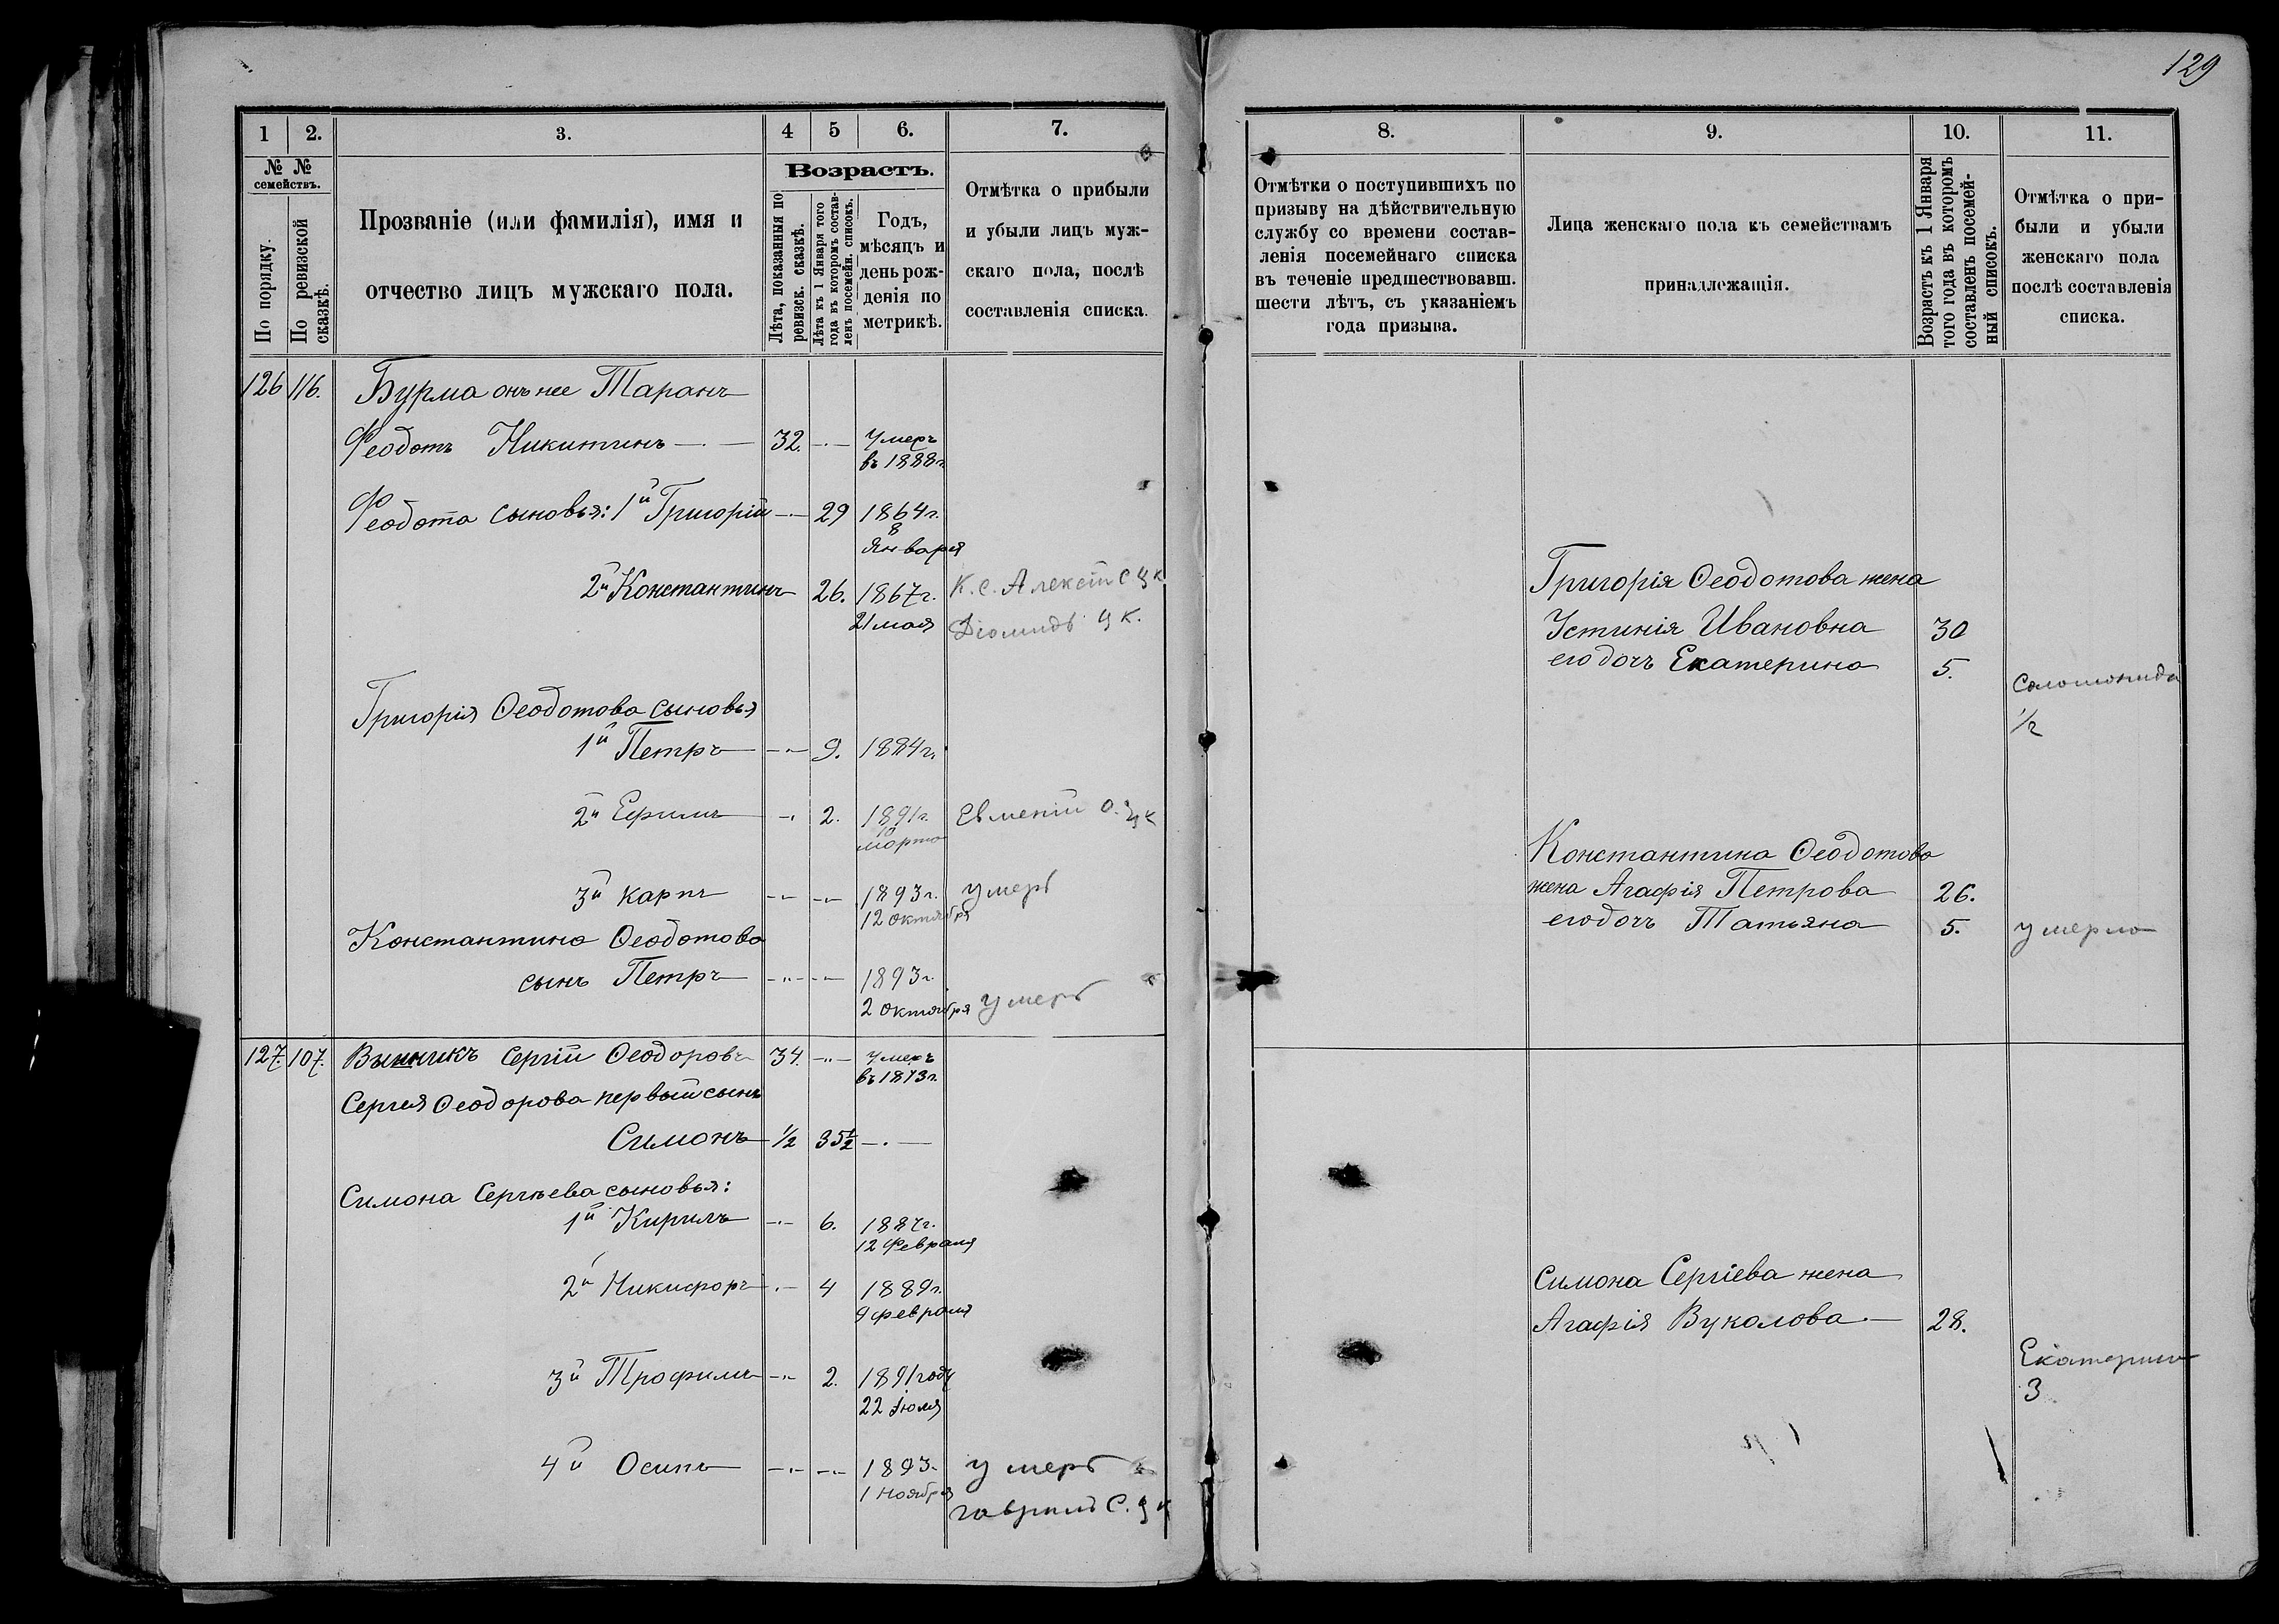 129
1
2.
3.
4
5
6.
7.
№ №
семействъ.
По порядку.
По ревизской
сказкѣ.
Прозваніе (или фамилія), имя и
отчество лицъ мужскаго пола.
Возрастъ.
Лѣта, показанныя по
ревизск. сказкѣ.
Лѣта къ 1 Января того
года въ которомъ состав-
ленъ посемейн. списокъ.
Годъ,
мѣсяцъ и
день рож-
денія по
метрикѣ.
Отмѣтка о прибыли
и убыли лицъ муж-
скаго пола, послѣ
составленія списка.
126 116. Бурма онъ нее Таранъ
Феодотъ Никитинъ 32. Умеръ
въ 1888г.
Феодота сыновья: 1й Григорій 29 1864г.
8
Января
2й Константинъ 26. 1867г. К. С. Алексій
21 мая Діомидъ
Григорія Ѳеодотова сыновья
1й Петръ 9. 1884г.
2й Ефимъ 2. 1891г. Евменій
10
марта
3й Карпъ 1893г. умеръ
12 октября
Константина Ѳеодотова
сынъ Петръ 1893г.
2 октября умеръ
127. 107. Винникъ Сергій Ѳеодоровъ 34. Умеръ
въ 1873г.
Сергея Ѳеодорова первый сынъ
Симонъ 1/2 35 1/2
Симона Сергѣева сыновья:
1й Кирилъ 6. 1887г.
12 Февраля
2й Никифоръ 4 1889г.
9 февраля
3й Трофимъ 2. 1891 году
22 Іюля
4й Осипъ 1893. умеръ
1 Ноября
Гаврилъ С.
8.
9.
10.
11.
Отмѣтки о поступившихъ по
призыву на дѣйствительную
службу со времени состав-
ленія посемейнаго списка
въ теченіе предшествовавш.
шести лѣтъ, съ указаніемъ
года призыва.
Лица женскаго пола къ семействамъ
принадлежащія.
Возрастъ къ 1 Января
того года въ которомъ
составленъ посемей-
ный списокъ.
Отмѣтка о при-
были и убыли
женскаго пола
послѣ составленія
списка.
Григорія Ѳеодотова жена
Устинія Ивановна 30
его дочь Екатерина 5.
Соломонида
1/2
Константина Ѳеодотова
жена Агафія Петрова 26.
его дочь Татьяна 5. умерла
Симона Сергіева жена
Агафія Вуколова 28.
Екатерина
3